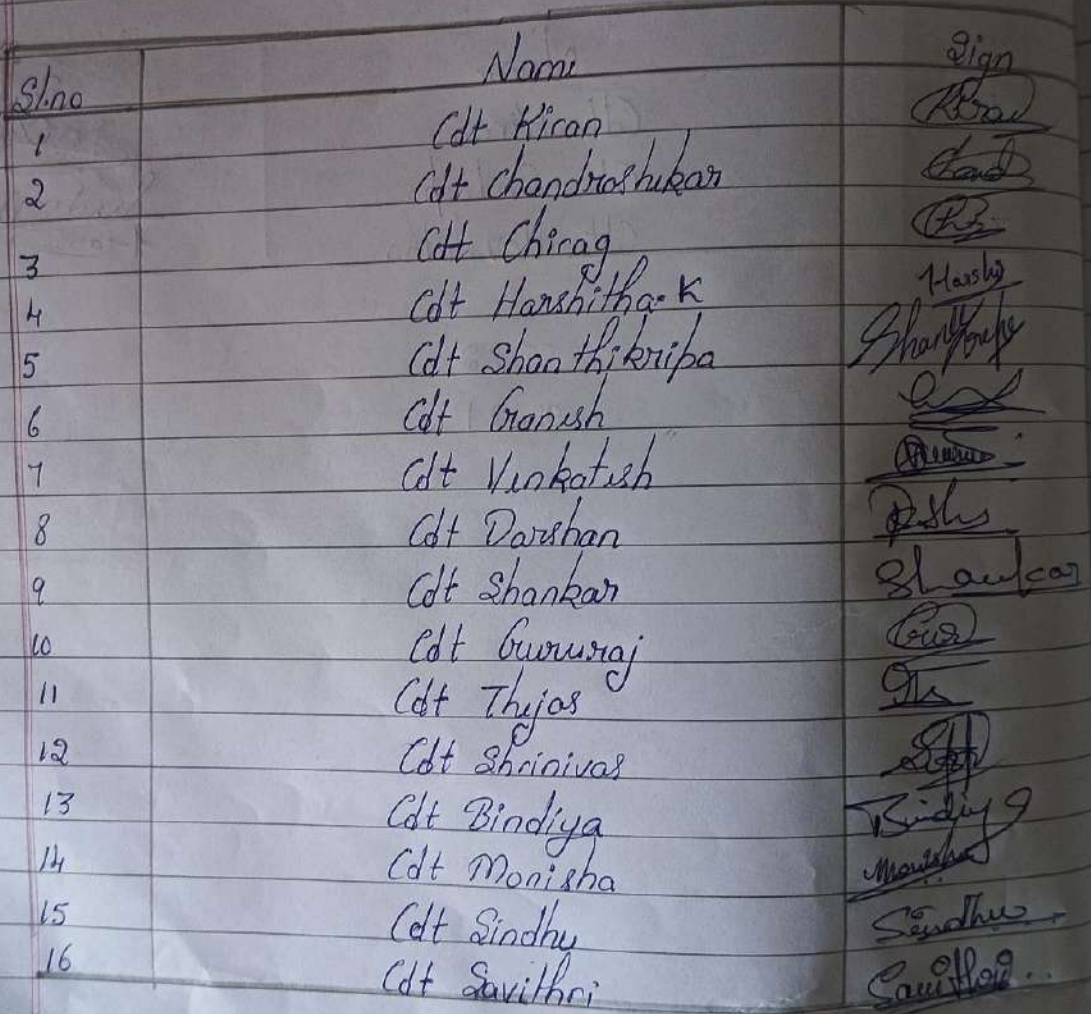 Sl.no Name Sign
1 Cdt Kiran Kiran
2 Cdt Chandrashekar Chand
3 Cdt Chirag
4 Cdt Harshitha.K Harshi
5 Cdt Shanthikripa
6 Cdt Ganesh
7 Cdt Venkatesh
8 Cdt Darshan
9 Cdt Shankar Shankar
10 Cdt Gururaj Gur
11 Cdt Thejas
12 Cdt Shrinivas
13 Cdt Bindiya Bindiya
14 Cdt Monisha Monisha
15 Cdt Sindhu Sindhu
16 Cdt Savithri Savithri